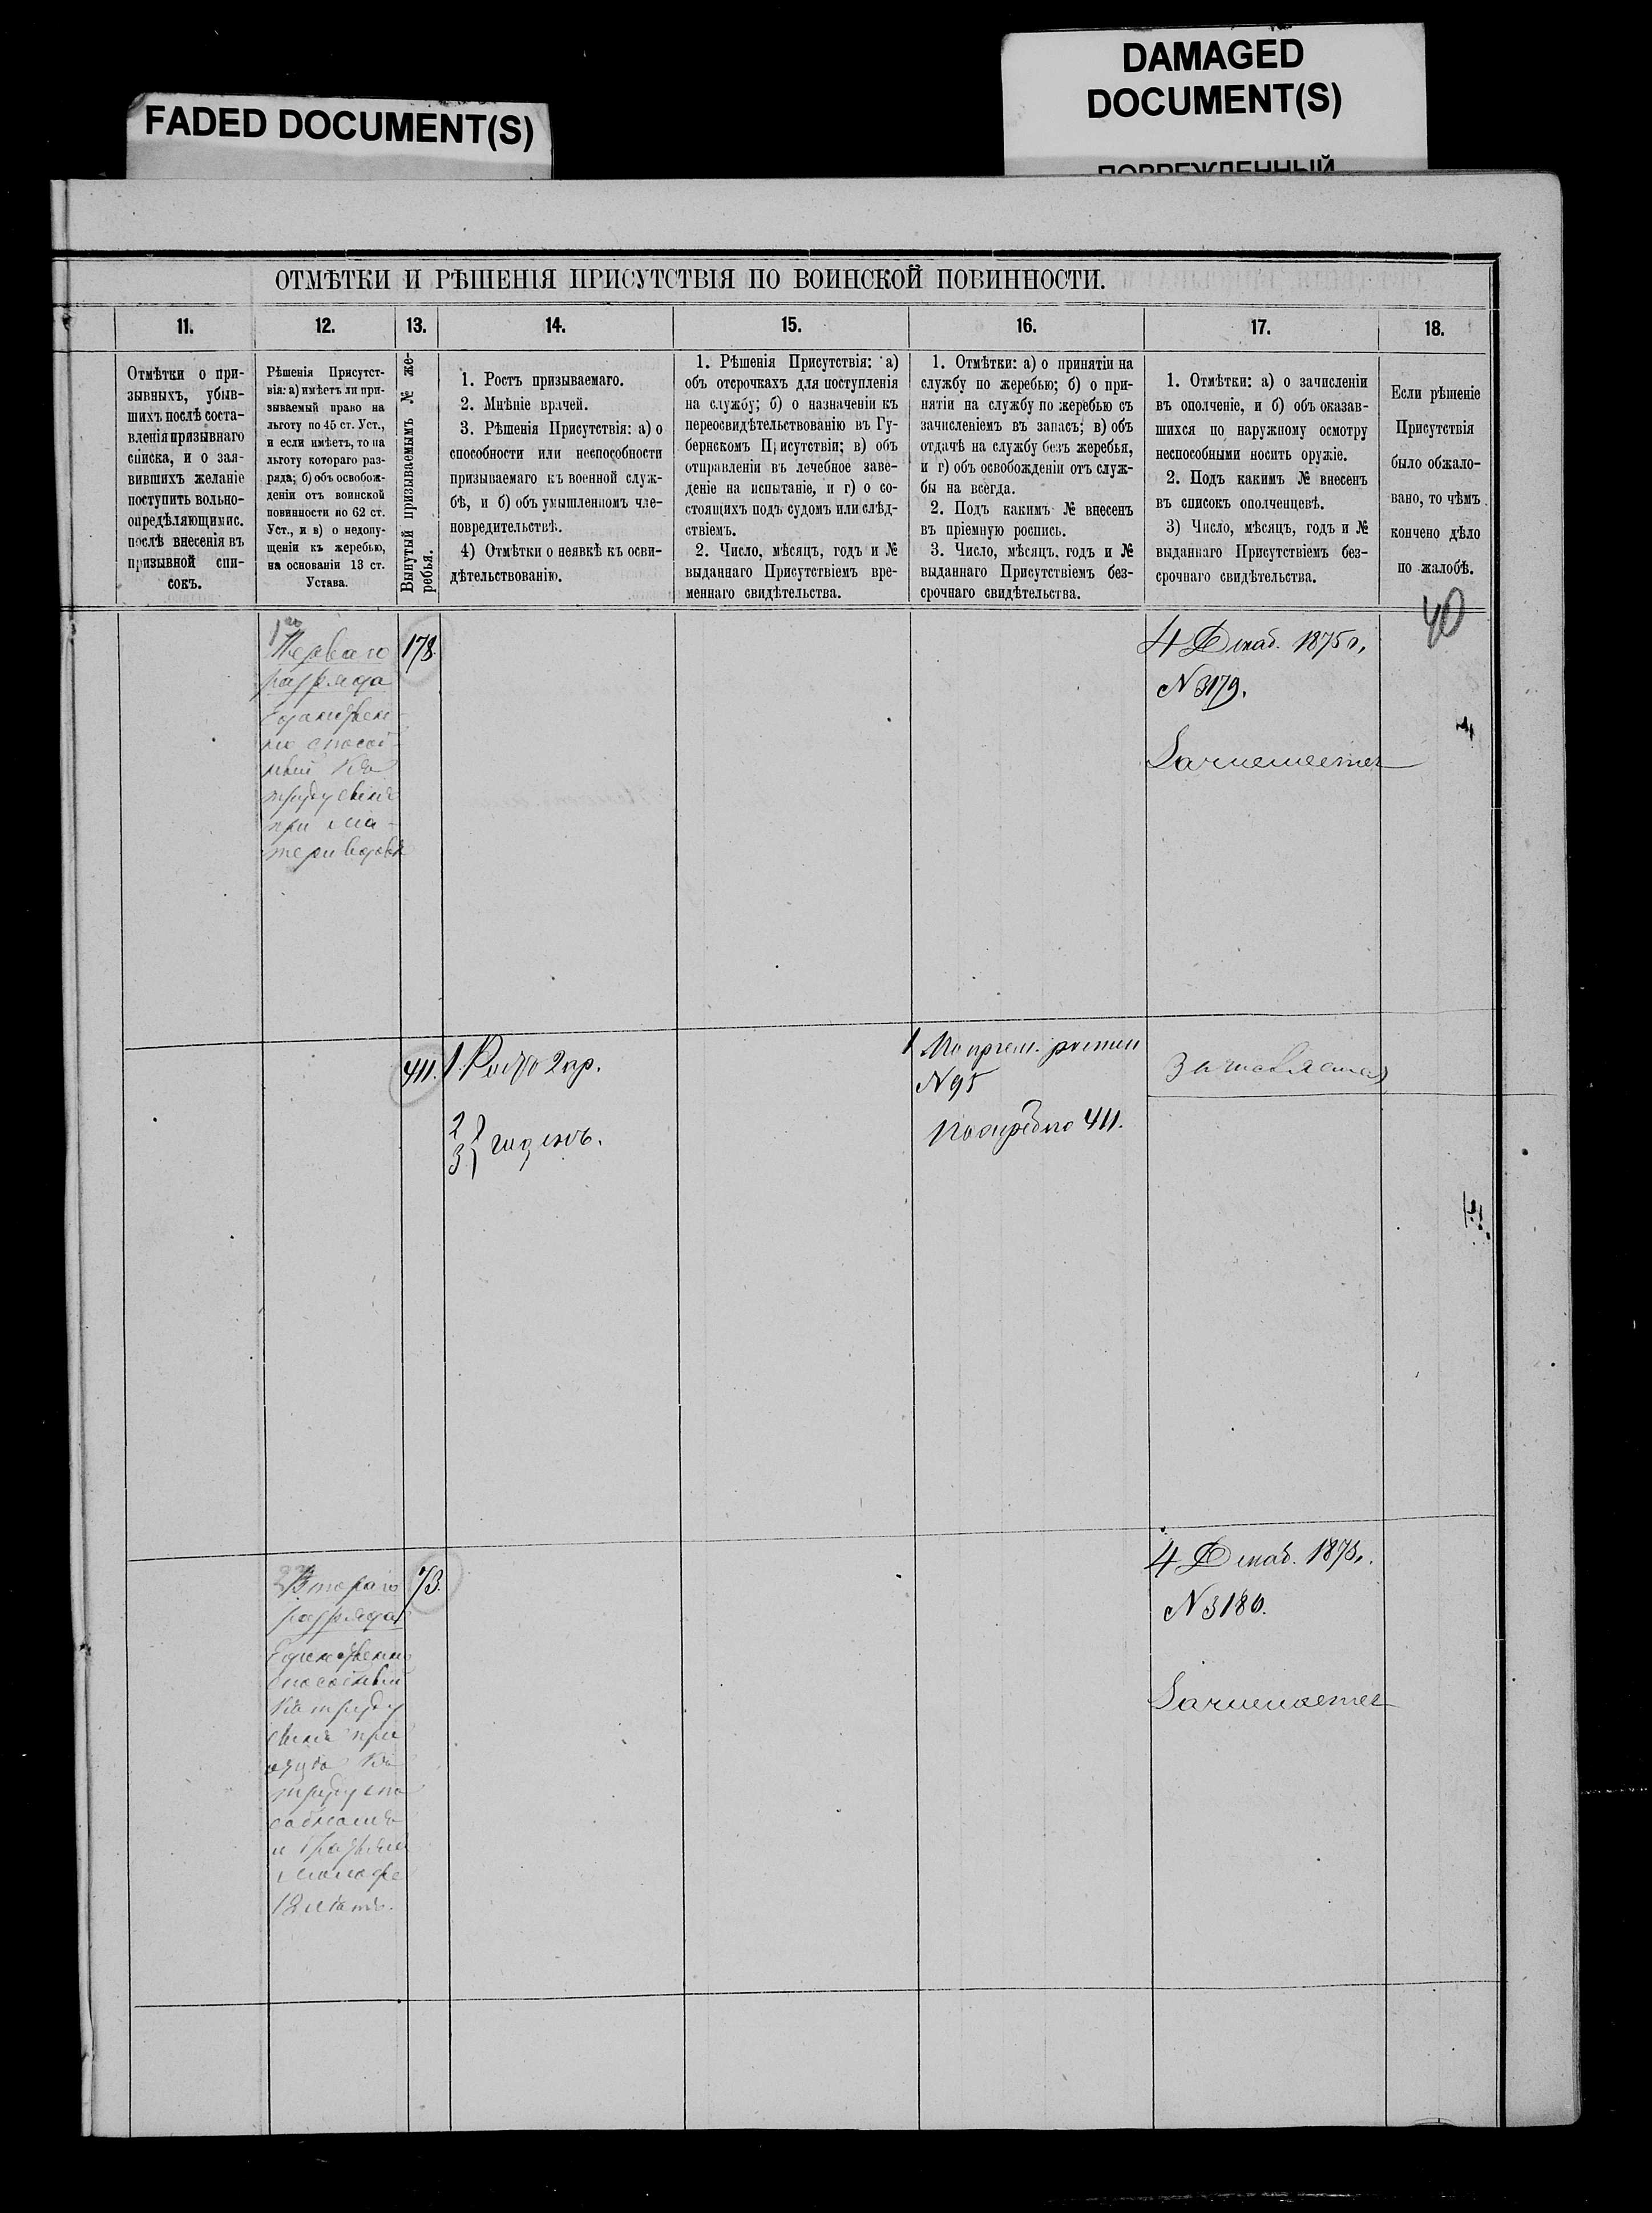 DAMAGED
DOCUMENT(S)
FADED DOCUMENT(S)
ПОВРЕЖДЕННЫЙ
ОТМѢТКИ И РѢШЕНІЯ ПРИСУТСТВІЯ ПО ВОИНСКОЙ ПОВИННОСТИ.
11.
12.
13.
14.
15.
16.
17.
18.
Отмѣтки о при-
зывныхъ, убыв-
шихъ послѣ соста-
вленія призывнаго
списка, и о зая-
вившихъ желаніе
поступить вольно-
опредѣляющимис.
послѣ внесенія въ
призывной спи-
сокъ.
Рѣшенія Присутст-
вія: а) имѣетъ ли при-
зываемый право на
льготу по 45 ст. Уст.,
и если имѣетъ, то на
льготу котораго раз-
ряда; б) объ освобож-
деніи отъ воинской
повинности по 62 ст.
Уст., и в) о недопу-
щеніи къ жеребью,
на основаніи 13 ст.
Устава.
Вынутый призываемымъ № же-
ребья.
1. Ростъ призываемаго.
2. Мнѣніе врачей.
3. Рѣшенія Присутствія: а) о
способности или неспособности
призываемаго къ военной служ-
бѣ, и б) объ умышленномъ чле-
новредительствѣ.
4) Отмѣтки о неявкѣ къ осви-
дѣтельствованію.
1. Рѣшенія Присутствія: а)
объ отсрочкахъ для поступленія
на службу; б) о назначеніи къ
переосвидѣтельствованію въ Гу-
бернскомъ Присутствіи; в) объ
отправленіи въ лечебное заве-
деніе на испытаніе, и г) о со-
стоящихъ подъ судомъ или слѣд-
ствіемъ.
2. Число, мѣсяцъ, годъ и №
выданнаго Присутствіемъ вре-
меннаго свидѣтельства.
1. Отмѣтки: а) о принятіи на
службу по жеребью; б) о при-
нятіи на службу по жеребью съ
зачисленіемъ въ запасъ; в) объ
отдачѣ на службу безъ жеребья,
и г) объ освобожденіи отъ служ-
бы на всегда.
2. Подъ какимъ № внесенъ
въ пріемную роспись.
3. Число, мѣсяцъ, годъ и №
выданнаго Присутствіемъ без-
срочнаго свидѣтельства.
1. Отмѣтки: а) о зачисленіи
въ ополченіе, и б) объ оказав-
шихся по наружному осмотру
неспособными носить оружіе.
2. Подъ какимъ № внесенъ
въ списокъ ополченцевъ.
3) Число, мѣсяцъ, годъ и №
выданнаго Присутствіемъ без-
срочнаго свидѣтельства.
Если рѣшеніе
Присутствія
было обжало-
вано, то чѣмъ
кончено дѣло
по жалобѣ.
40
Перваго
разряда
Единствен
но способ-
ный къ
труду сынъ
при ма-
тери вдовѣ
178.
4 Декаб. 1875 г.
N 3179.
411.
1. Ростъ 2 ар.
2
3 } годенъ.
1 По прием. росписи
N 95
По жеребью 411.
Втораго
разряда
Единственно
способный
къ труду
сынъ при
отцѣ къ
труду спо
собномъ
и братѣ
моложе
18 лѣтъ.
73.
4 Декаб. 1875.
N 3180.